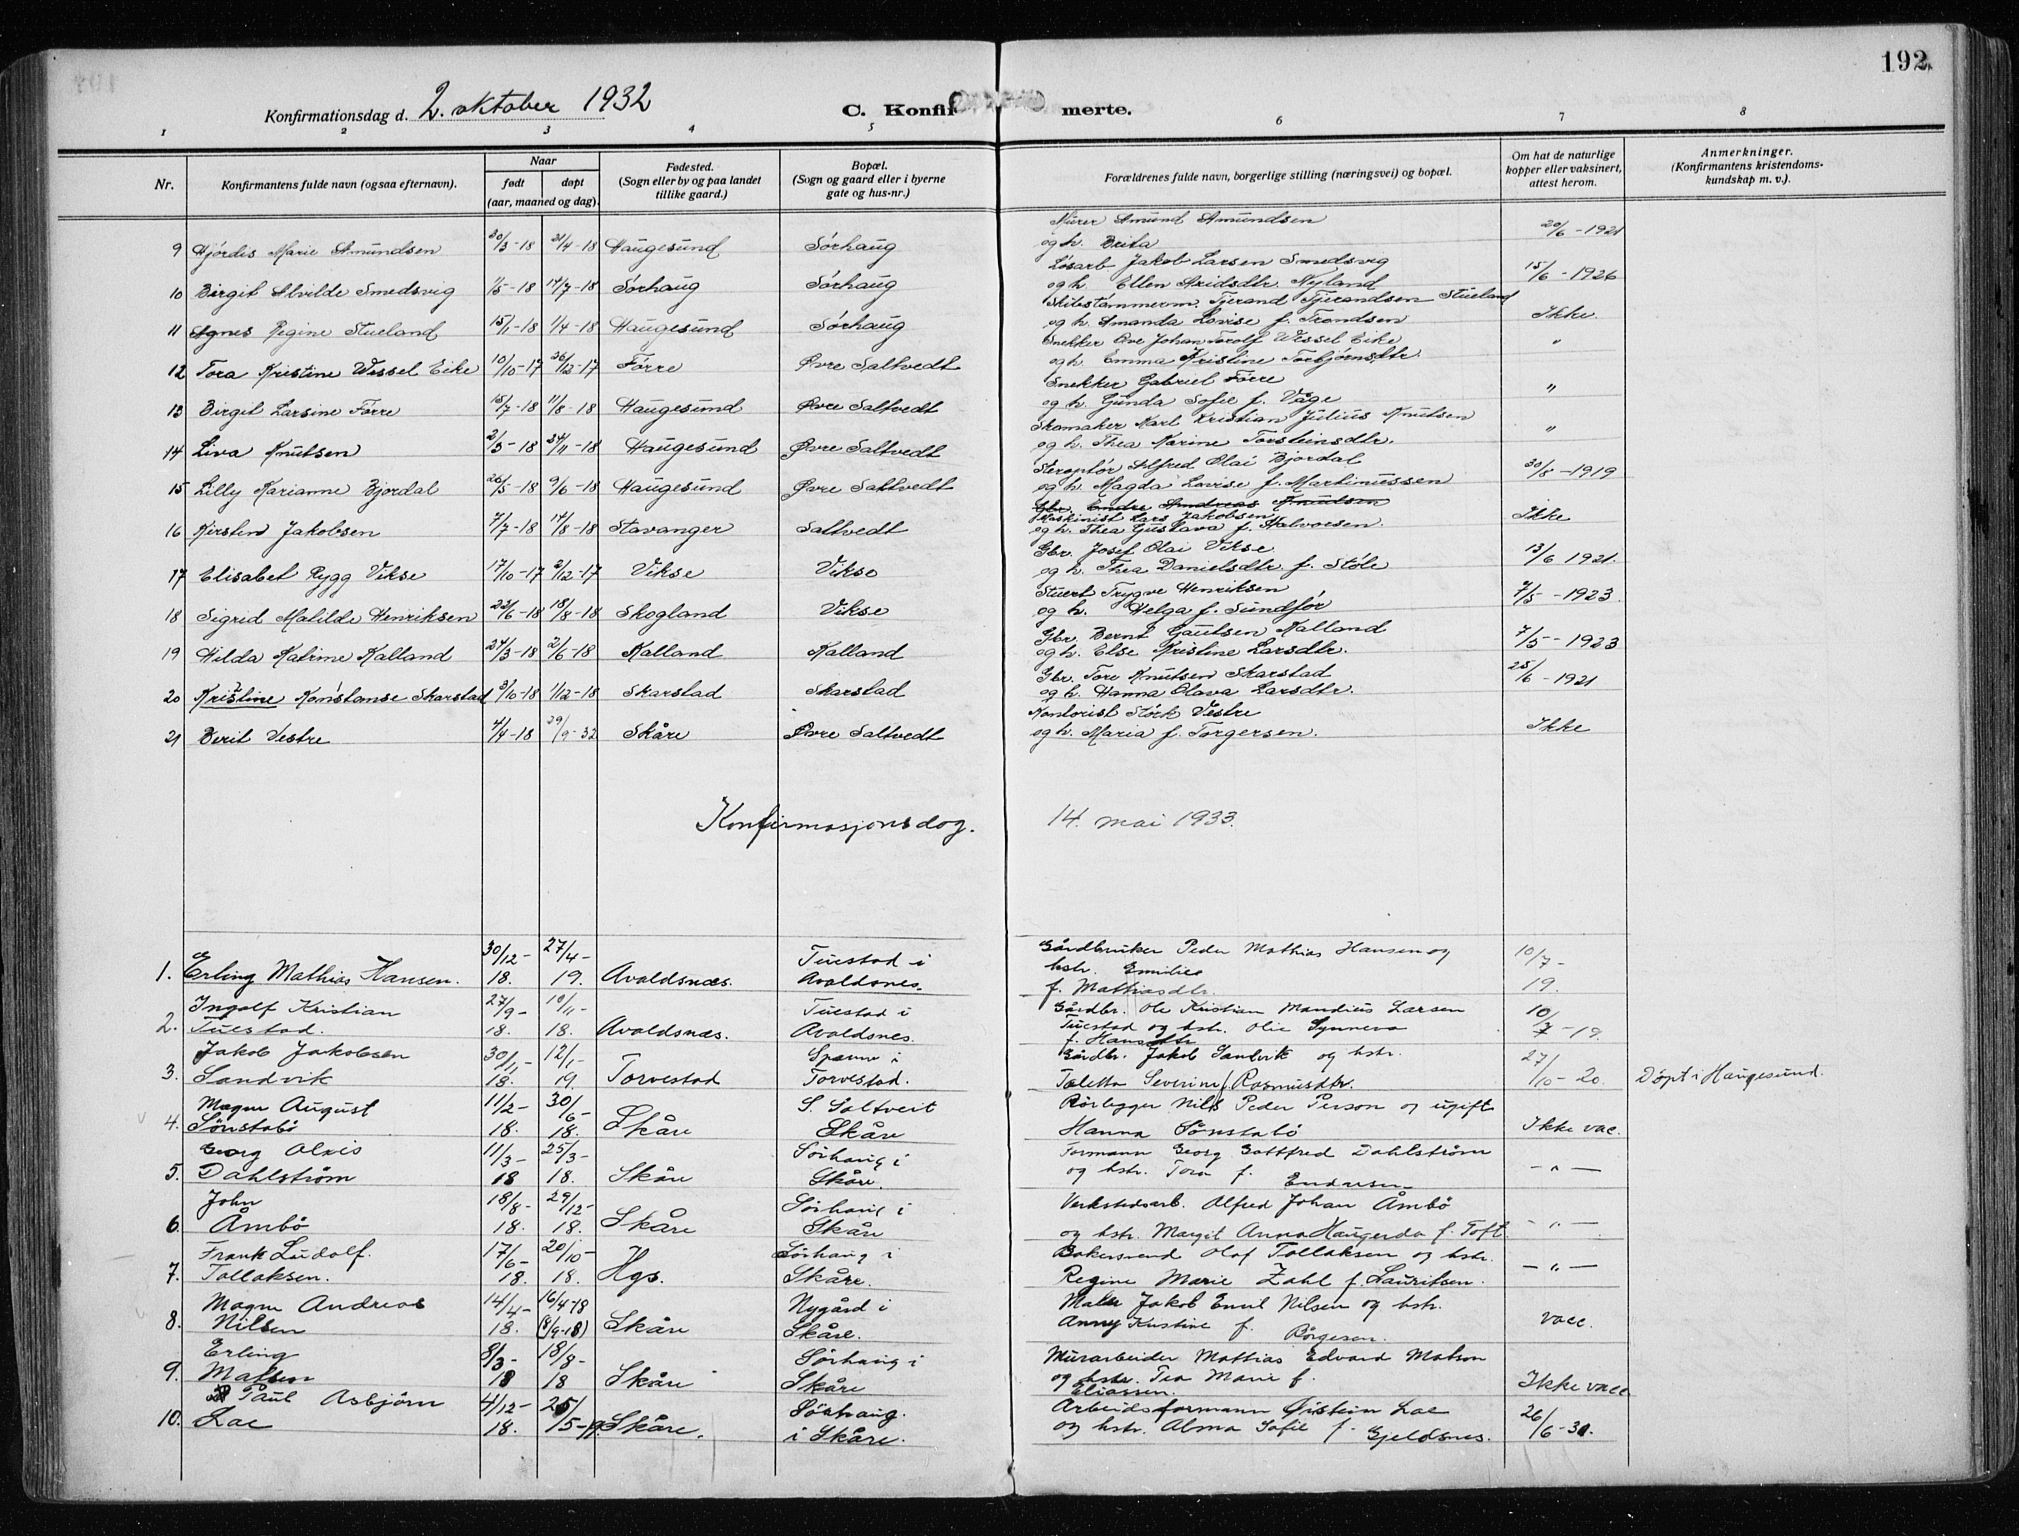 192.
Konfirmationsdag d. 2. oktober 1932
C. Konfirmerte.
1 2 3 4 5 6 7 8
Nr.
Konfirmantens fulde navn (ogsaa efternavn).
Naar
født
døpt
(aar, maaned og dag).
Fødested.
(Sogn eller by og paa landet
tillike gaard.)
Bopæl.
(Sogn og gaard eller i byerne
gate og hus-nr.)
Forældrenes fulde navn, borgerlige stilling (næringsvei) og bopæl.
Om hat de naturlige
kopper eller vaksinert,
attest herom.
Anmerkninger.
(Konfirmantens kristendoms-
kundskap m. v.).
Murer Amund Amundsen
9 Hjördis Marie Amundsen 20/3-18 21/4-18 Haugesund Sörhaug og h. Brita 20/6-1921
Lösarb. Jakob Larsen Smedsvig
10 Birgit Alvilde Smedsvig 1/5-18 14/7-18 Sörhaug Sörhaug og h. Ellen Nyland 15/6-1926
Tjerand Tjerandsen Stueland
11 Agnes Regine Stueland 15/1-18 1/4-18 Haugesund Sörhaug og h. Amanda Lovise f. Trondsen Ikke.
Snekker Ove Johan Torolf Wessel Eike
12 Tora Kristine Wessel Eike 10/10-17 26/12-17 Förre Øvre Saltvedt og h. Emma Kristine Torbjørnsdtr. "
Snekker Gabriel Förre
13 Birgit Larsine Förre 15/7-18 11/8-18 Haugesund Øvre Saltvedt og h. Gunda Sofie f. Våge "
Skomaker Karl Kristian Julius Knutsen
14 Liva Knutsen 2/3-18 24/11-18 Haugesund Øvre Saltvedt og h. Thea Karine Torsteinsdtr. "
Alfred Olai Bjordal
15 Lilly Marianne Bjordal 26/5-18 9/6-18 Haugesund Øvre Saltvedt og h. Magda Lovise f. Martinussen 30/8-1919
Gbr. Endre Andreas Knudsen
Maskinist Lars Jakobsen
16 Kirsten Jakobsen 7/7-18 14/8-18 Stavanger Saltvedt og h. Thea Gustava f. Halvorsen. Ikke
Gbr. Josef Olai Vikse
17 Elisabet Rygg Vikse 17/10-17 2/12-17 Vikse Vikse og h. Thea Danielsdtr. f. Stöle 13/6 1921.
Stuert Trygve Henriksen
18 Sigrid Matilde Henriksen 23/6-18 18/8-18 Skogland Vikse og h. Helga f. Sundför 7/5-1923
Gbr. Bernt Gautsen Kalland
19 Hilda Katrine Kalland 24/3-18 2/6-18 Kalland Kalland og h. Else Kristine Larsdtr. 7/5-1923
Gbr. Tore Knutsen Skarstad
20 Kristine Konstanse Skarstad 3/10-18 1/12-18 Skarstad Skarstad og h. Hanna Olava Larsdtr. 25/6-1921
Kontorist Störk Vestre
21 Berit Vestre 4/4-18 29/9-32 Skåre Øvre Saltvedt og h. Maria f. Torgersen. Ikke
Konfirmasjonsdag. 14. mai 1933.
30/12- 27/4- Tuestad i Gårdbruker Peder Mathias Hansen og 10/7-
1. Erling Mathias Hansen. 18. 19. Avaldsnæs. Avaldsnes. hstr. Emilie
f. Mathiasdtr. 19.
Ingolf Kristian 27/9- 10/11- Tuestad i Gårdbr. Ole Kristian Mandius Larsen 10/
2. Tuestad. 18. 18. Avaldsnæs. Avaldsnes. Tuestad og hstr. Olie Synneva 7-19.
f. Hansdtr
Jakob Jakobsen 30/11- 12/1- i Gårdbr. Jakob Sandvik og hstr. 27/
3. Sandvik 18. 19. Torvestad Torvestad. Taletta Severine f. Rasmusdtr. 10-20. Døpt i Haugesund.
Magne August 11/2- 30/6- S. Saltveit Rørlegger Nils Peder Person og ugift
4. Sönstabö 18. 18. Skåre Skåre Hanna Sönstabö Ikke vac.
Georg Alvis 11/3- 25/3- Sörhaug i Formann Georg Gottfred Dahlström
5. Dahlström 18 18. Skåre Skåre. og hstr. Tora f. Endresen -"-
John 18/8- 29/12- Sörhaug i Verkstedsarb. Alfred Johan Åmbö
6. Åmbö 18. 18. Skåre Skåre og hstr. Margit Anna Haugerda f. Toft -"-
Frank Ludolf. 17/6- 20/10- Sörhaug i Bakersvend Olaf Tollaksen og hstr.
7. Tollaksen. 18. 18. Hgs. Skåre. Regine Marie Zahl f. Lauritsen. -"-
Magne Andreas 14/4- 16/4-18 Nygård i Maler Jakob Emil Nilsen og hstr.
8. Nilsen 18. (8/9-18) Skåre Skåre. Anny Kristine f. Börgesen. vacc.
Erling 8/3- 18/8- Sörhaug i Murarbeider Mathias Edvard Matson
9. Matson 18 18 Skåre Skåre og hstr. Tea Marie f.
Eliassen. Ikke vacc
Paul Asbjörn 4/12- 25/ Sörhaug. Arbeidsformann Øistein Lae 26
10. Lae 18. 5-19 Skåre. i Skåre. og hstr. Alma Sofie f. Gjeldsnes. /6-31.